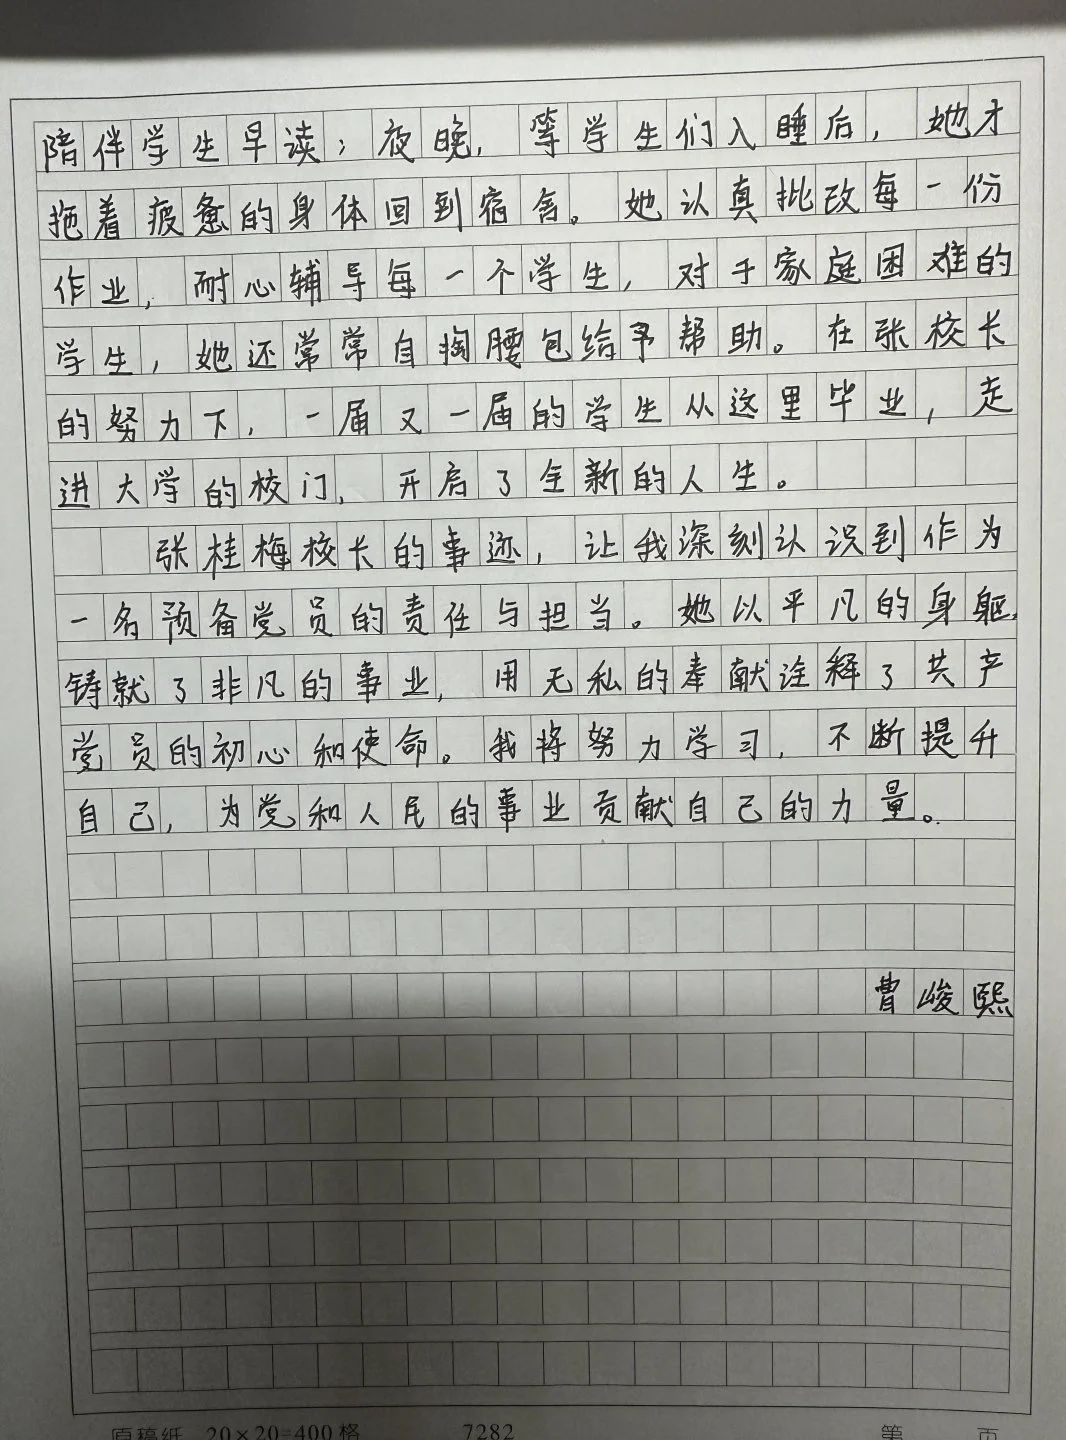 陪伴学生早读；夜晚，等学生们入睡后，她才
拖着疲惫的身体回到宿舍。她认真批改每一份
作业，耐心辅导每一个学生，对于家庭困难的
学生，她还常常自掏腰包给予帮助。在张校长
的努力下，一届又一届的学生从这里毕业，走
进大学的校门，开启了全新的人生。
张桂梅校长的事迹，让我深刻认识到作为
一名预备党员的责任与担当。她以平凡的身躯，
铸就了非凡的事业，用无私的奉献诠释了共产
党员的初心和使命。我将努力学习，不断提升
自己，为党和人民的事业贡献自己的力量。
曹峻熙
原稿纸 20×20=400格 7282 第 页